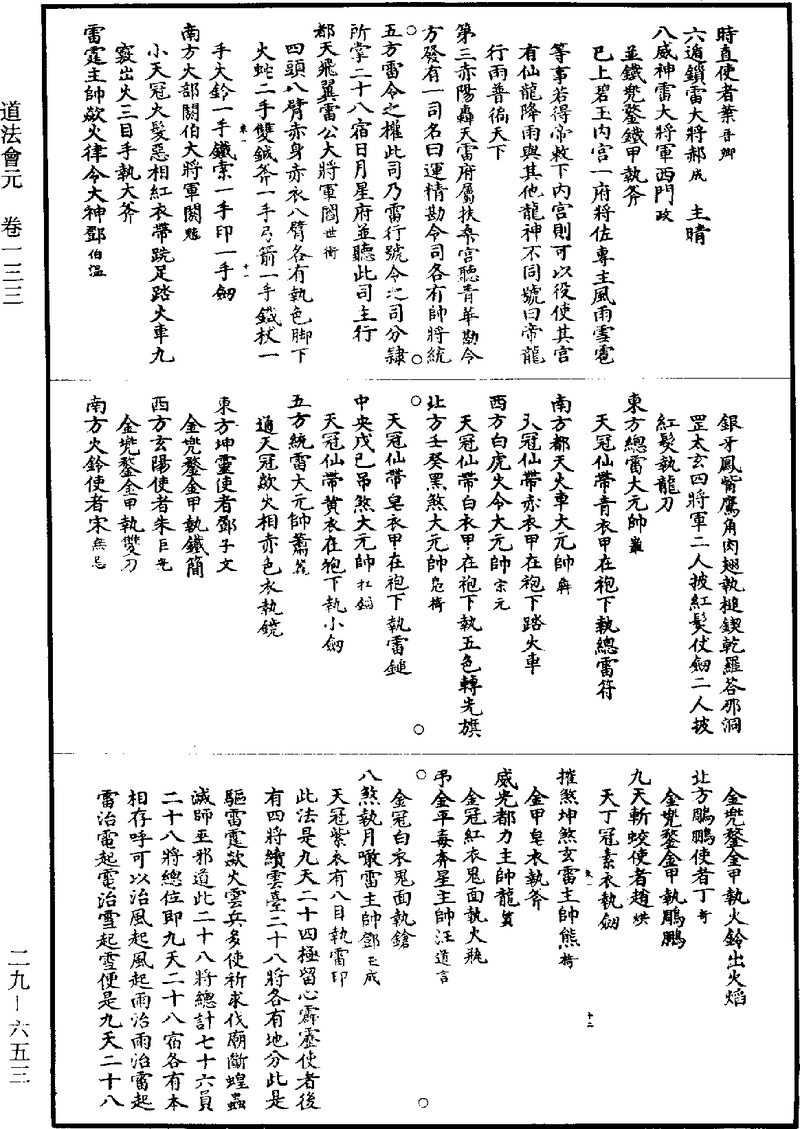 道法會元 卷一三三
時直使者葉音卿
六通鎖雷大將郝成 主晴
八威神雷大將軍西門政
並鐵兜鍪鐵甲執斧
已上碧玉內宮一府將佐專主風雨雲雹
等事若得帝敕下內宮則可以役使其宮
有仙龍降雨與其他龍神不同號曰帝龍
行雨普徧天下
第三赤陽轟天雷府屬扶桑宮聽青華勘令
方發有一司名曰運精勘令司各有帥將統
五方雷令之權此司乃雷行號令之司分隸
所掌二十八宿日月星府並聽此司主行
都天飛翼雷公大將軍閻世衛
四頭八臂赤身赤衣八臂各有執色脚下
火蛇二手雙鉞斧一手弓箭一手鐵杖一
手火鈴一手鐵索一手印一手劒
南方火部關伯大將軍關
小天冠火髮惡相紅衣帶跣足踏火車九
竅出火三目手執大斧
雷霆主帥歘火律令大神鄧伯溫
銀牙鳳觜鷹角肉翅執槌鍥乾羅荅那洞
罡太玄四將軍二人披紅髮仗劒二人披
紅髮執龍刀
東方總雷大元帥
天冠仙帶青衣甲在袍下執總雷符
南方都天火車大元帥
天冠仙帶赤衣甲在袍下踏火車
西方白虎火令大元帥宗元
天冠仙帶白衣甲在袍下執五色轉光旗
北方壬癸黑煞大元帥
天冠仙帶皂衣甲在袍下執雷鎚
中央戊己吊煞大元帥
天冠仙帶黃衣在袍下執小劒
五方統雷大元帥蕭
通天冠歘火相赤色衣執鏡
東方坤靈使者鄧子文
金兜鍪金甲執鐵簡
西方玄陽使者朱巨光
金兜鍪金甲執雙刃
南方火鈴使者宋無忌
金兜鍪金甲執火鈴出火焰
北方鵰鵬使者丁奇
金兜鍪金甲執鵰鵬
九天斬蛟使者趙烘
天丁冠素衣執劒
摧煞坤煞玄雷主帥熊
金甲皂衣執斧
威光都力主帥龍質
金冠紅衣鬼面執火瓶
弔金平毒奔星主帥汪道言
金冠白衣鬼面執鎗
八煞執月噉雷主帥鄧玉成
天冠紫衣有八目執雷印
此法是九天二十四極留心霹靂使者後
有四將續雲臺二十八將各有地分此是
驅雷霆歘火雲兵多使祈求伐廟斷蝗蟲
滅師巫邪道此二十八將總計七十六員
二十八將總位即九天二十八宿各有本
相存呼可以治風起風起雨治雨治雷起
雷治電起電治雪起雪便是九天二十八
二九－六五三